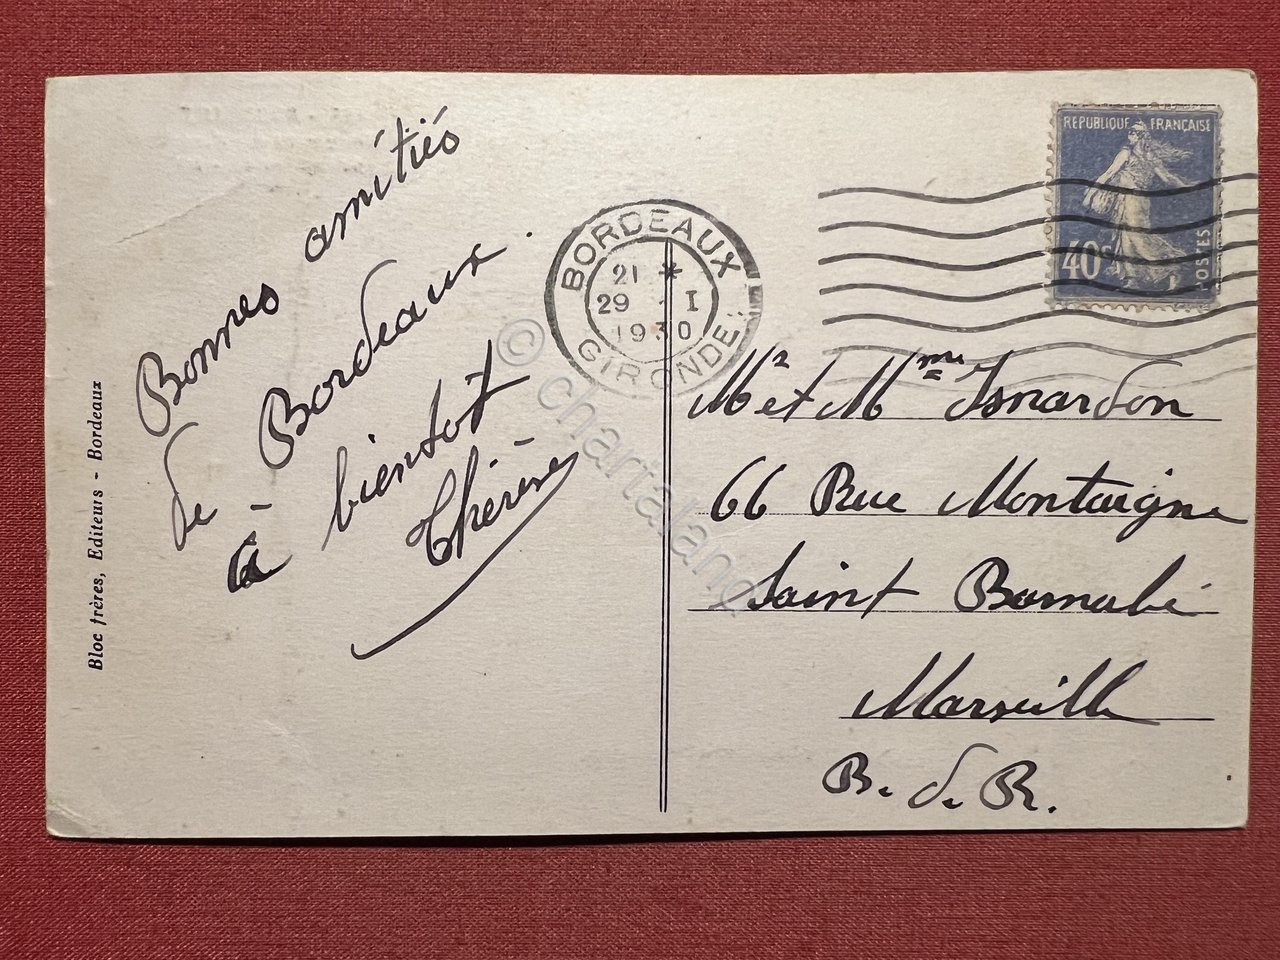 Bonnes amitiés
de Bordeaux.
à bientot
Thérèse
Bloc frères, Editeurs - Bordeaux
BORDEAUX
21 *
29 - I
1930
GIRONDE
REPUBLIQUE FRANÇAISE
40c
POSTES
Mr et Mme Isnardon
66 Rue Montaigne
Saint Barnabé
Marseille
B. d. R.
© chartaland